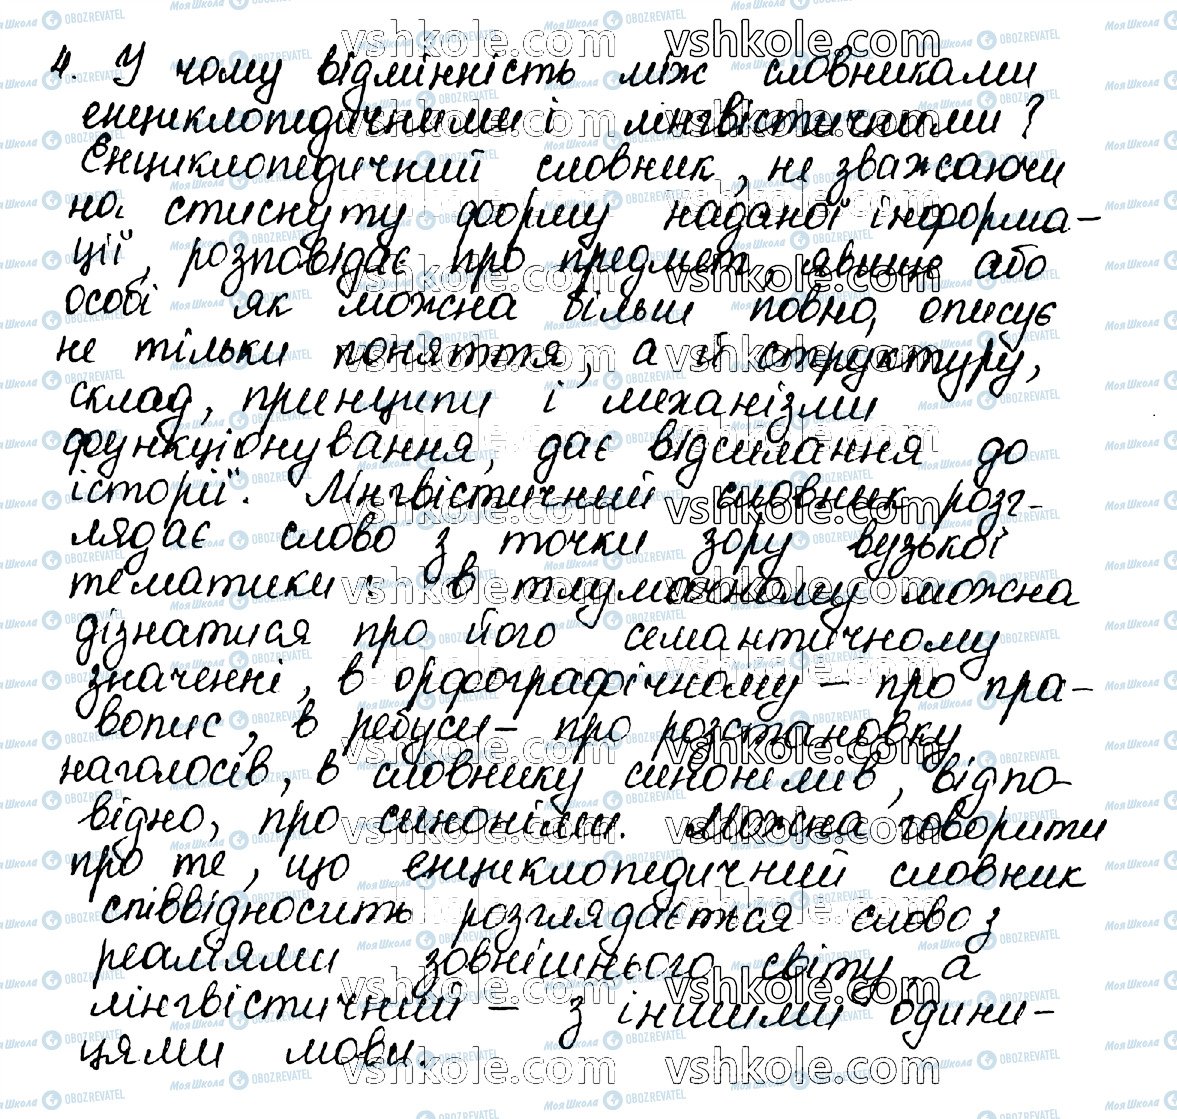 4. У чому відмінність між словниками
енциклопедичними і лінгвістичними?
Енциклопедичний словник, не зважаючи
на стиснуту форму наданої інформа-
ції, розповідає про предмет, явище або
особі як можна більш повно, описує
не тільки поняття, а й структуру,
склад, принципи і механізми
функціонування, дає відсилання до
історії. Лінгвістичний словник розг-
лядає слово з точки зору вузької
тематики: в тлумачному можна
дізнатися про його семантичному
значенні, в орфографічному - про пра-
вопис, в ребуси - про розстановку
наголосів, в словнику синонімів, відпо-
відно, про синоніми. Можна говорити
про те, що енциклопедичний словник
співвідносить розглядається слово з
реаліями зовнішнього світу, а
лінгвістичний - з іншими одини-
цями мови.